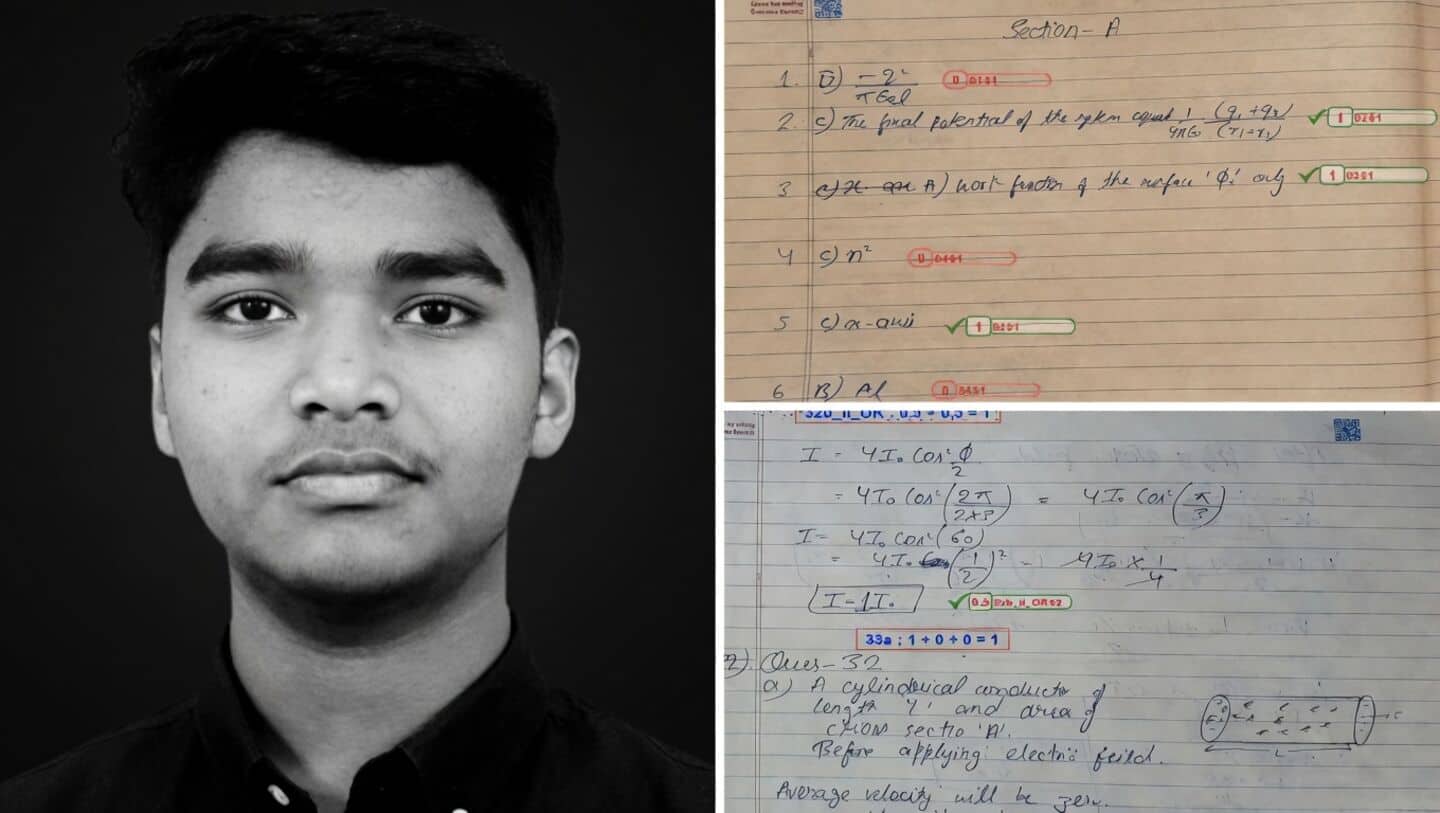 Section - A
1. D) -2² / πε₀l 0
2. C) The final potential of the system equal 1/4πε₀ (q₁+q₂)/(r₁+r₂) 1 02S1
3 A) work function of the surface 'ϕ₀' only 1 03S1
4 C) n² 0 04S1
5 C) x-axis 1
6 B) Al 0
32b_ii_OR : 0.5 + 0.5 = 1
I = 4I₀ Cos² ϕ/2
= 4I₀ Cos² (2π/2×3) = 4I₀ Cos² (π/3)
I = 4I₀ Cos² (60)
= 4I₀ (1/2)² = 4I₀ × 1/4
I = 1I₀ 0.5
33a : 1 + 0 + 0 = 1
Ques - 32
a) A cylindrical conductor of
length 'l' and area of
cross sectio 'A'.
Before applying electric feild.
L
Average velocity will be zero.